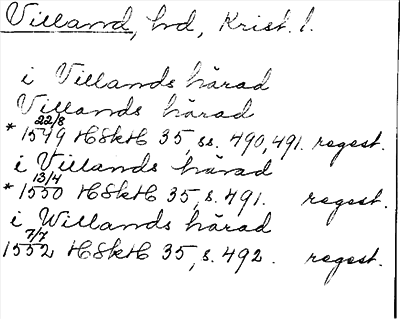 Villand, hd, Krist. l.
i Villands härad
Villands härad
* 1549 22/8 HSkH 35, ss. 490, 491. regest.
i Villands härad
* 1550 13/4 HSkH 35, s. 491. regest.
i Willands härad
1552 7/7 HSkH 35, s. 492. regest.